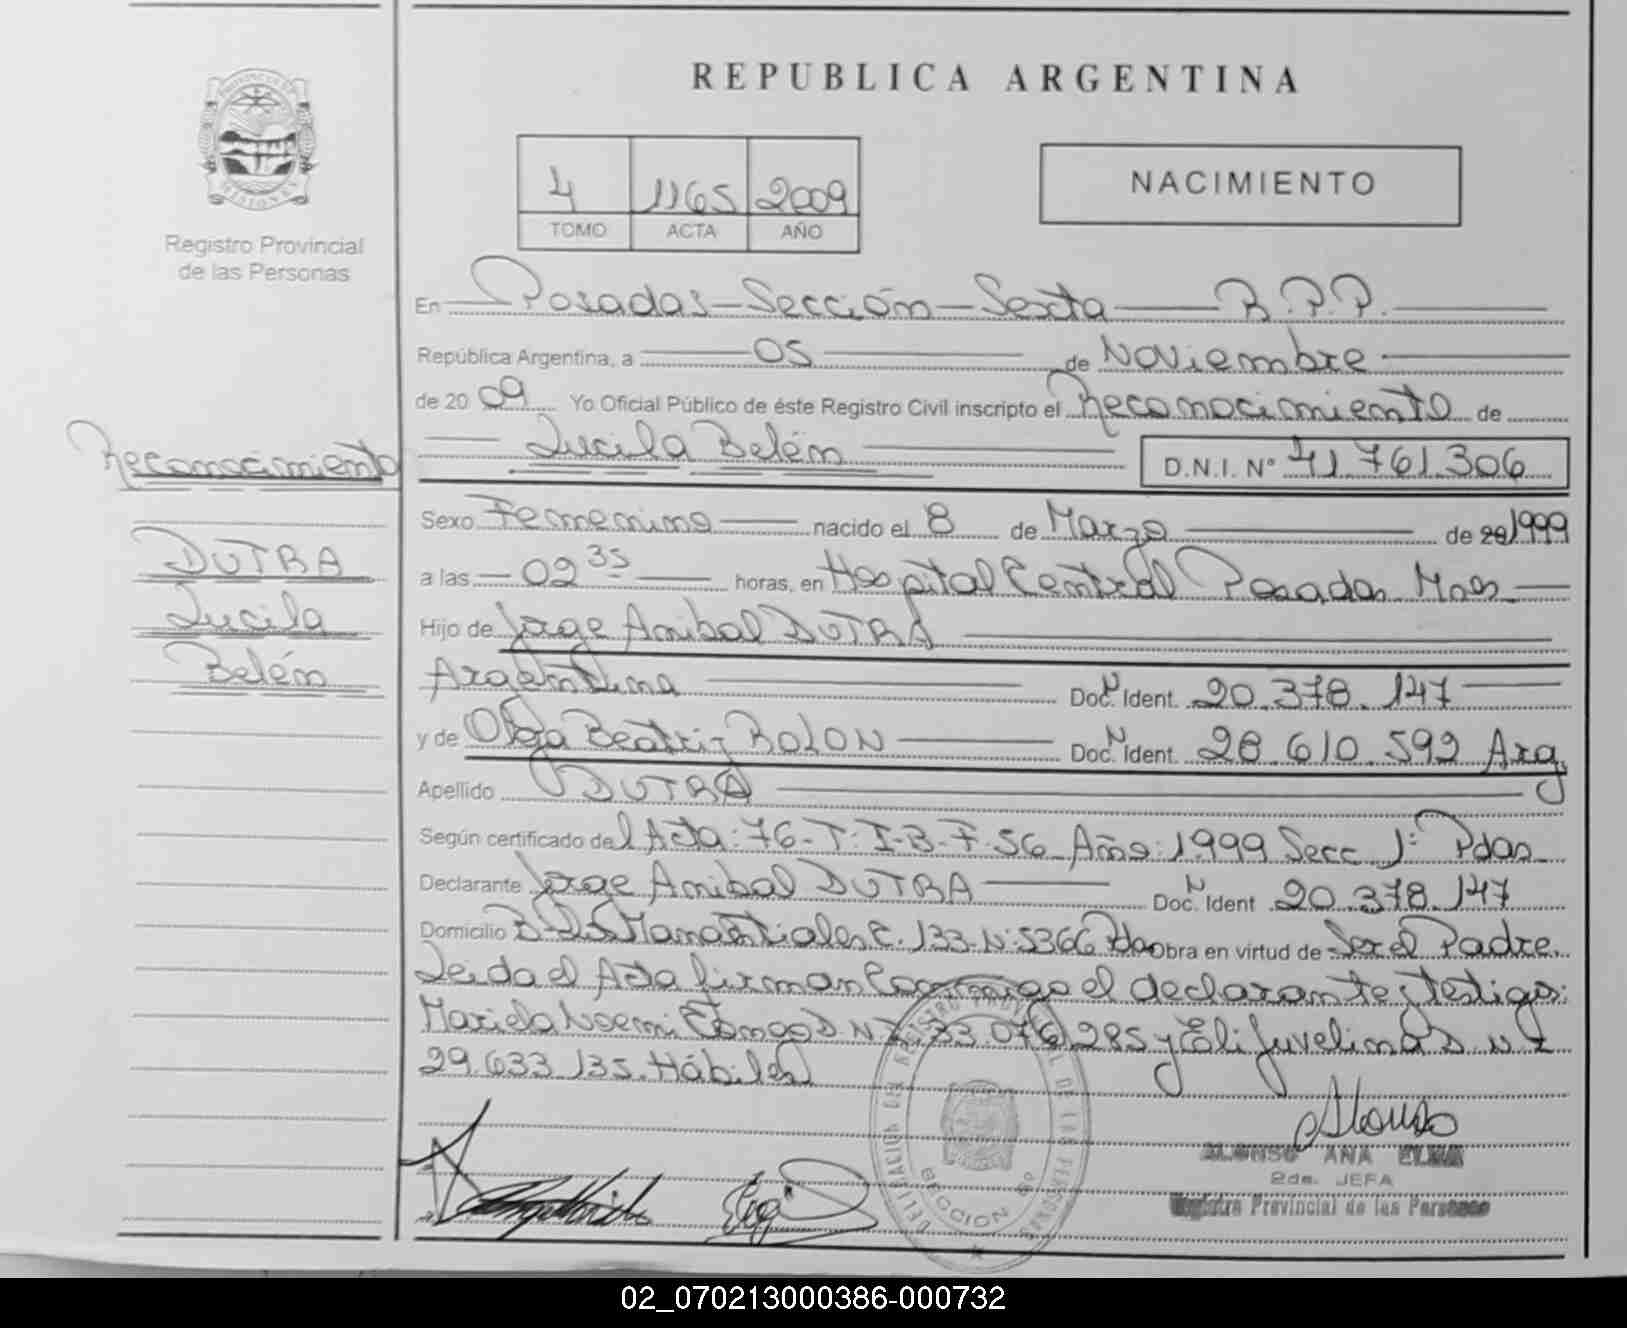 REPUBLICA ARGENTINA
PROVINCIA DE
MISIONES
Registro Provincial
de las Personas
4 1165 2009
TOMO ACTA AÑO
NACIMIENTO
En Posadas - Sección - Sexta R.P.P.
República Argentina, a 05 de Noviembre
de 20 09 Yo Oficial Público de éste Registro Civil inscripto el Reconocimiento de
Lucila Belén D.N.I. N° 41.761.306
Reconocimiento
DUTRA
Lucila
Belén
Sexo Femenino nacido el 8 de Marzo de 20 1999
a las 02 35 horas, en Hospital Central Posadas Mnes
Hijo de Jorge Anibal DUTRA
Argentina Doc. Ident. 20.378.147
y de Olga Beatriz ROLON Doc. Ident. 28.610.592 Arg
Apellido DUTRA
Según certificado de l Acta: 76- T: I-B- F-56 Año: 1999 Secc 1ª Pdas
Declarante Jorge Anibal DUTRA Doc. Ident 20.378.147
Domicilio B- Manantiales C. 133-N:5366 Pdas Obra en virtud de Ser el Padre.
Leida el Acta firman Conmigo el declarante y testigos:
Mariela Noemi D.N.I. 33.076.285 y Eli Juvelina D.N.I
29.633.135. Hábiles
DELEGACION DEL REGISTRO PROVINCIAL DE LAS PERSONAS
SECCION 6º
Alonso
ALONSO ANA ELMA
2da. JEFA
Registro Provincial de las Personas
02_070213000386-000732